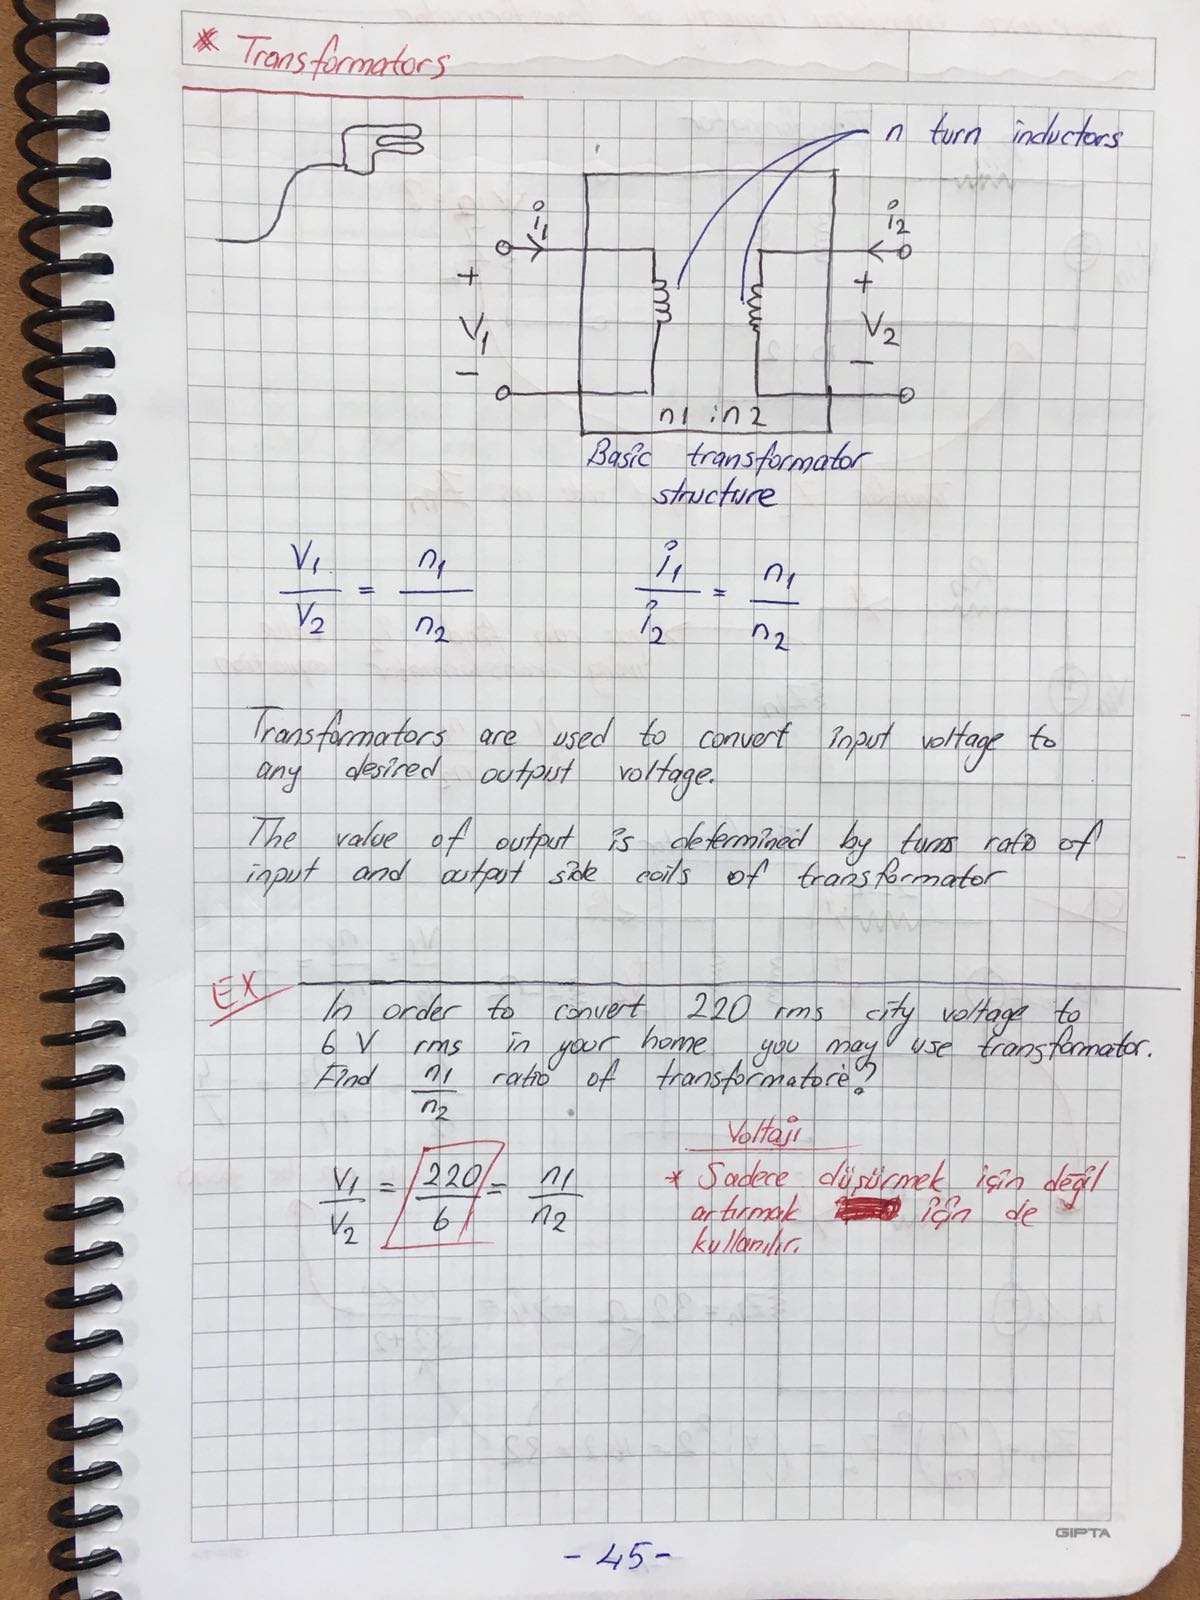 * Transformators
n turn inductors
i1
i2
+
+
V1
V2
-
-
n1 : n2
Basic transformator
structure
V1/V2 = n1/n2
i1/i2 = n1/n2
Transformators are used to convert input voltage to
any desired output voltage.
The value of output is determined by turns ratio of
input and output side coils of transformator
EX
In order to convert 220 rms city voltage to
6 V rms in your home you may use transformator.
Find n1/n2 ratio of transformatore?
V1/V2 = 220/6 = n1/n2
Voltajı
* Sadece düşürmek için değil
artırmak için de
kullanılır.
GIPTA
- 45 -